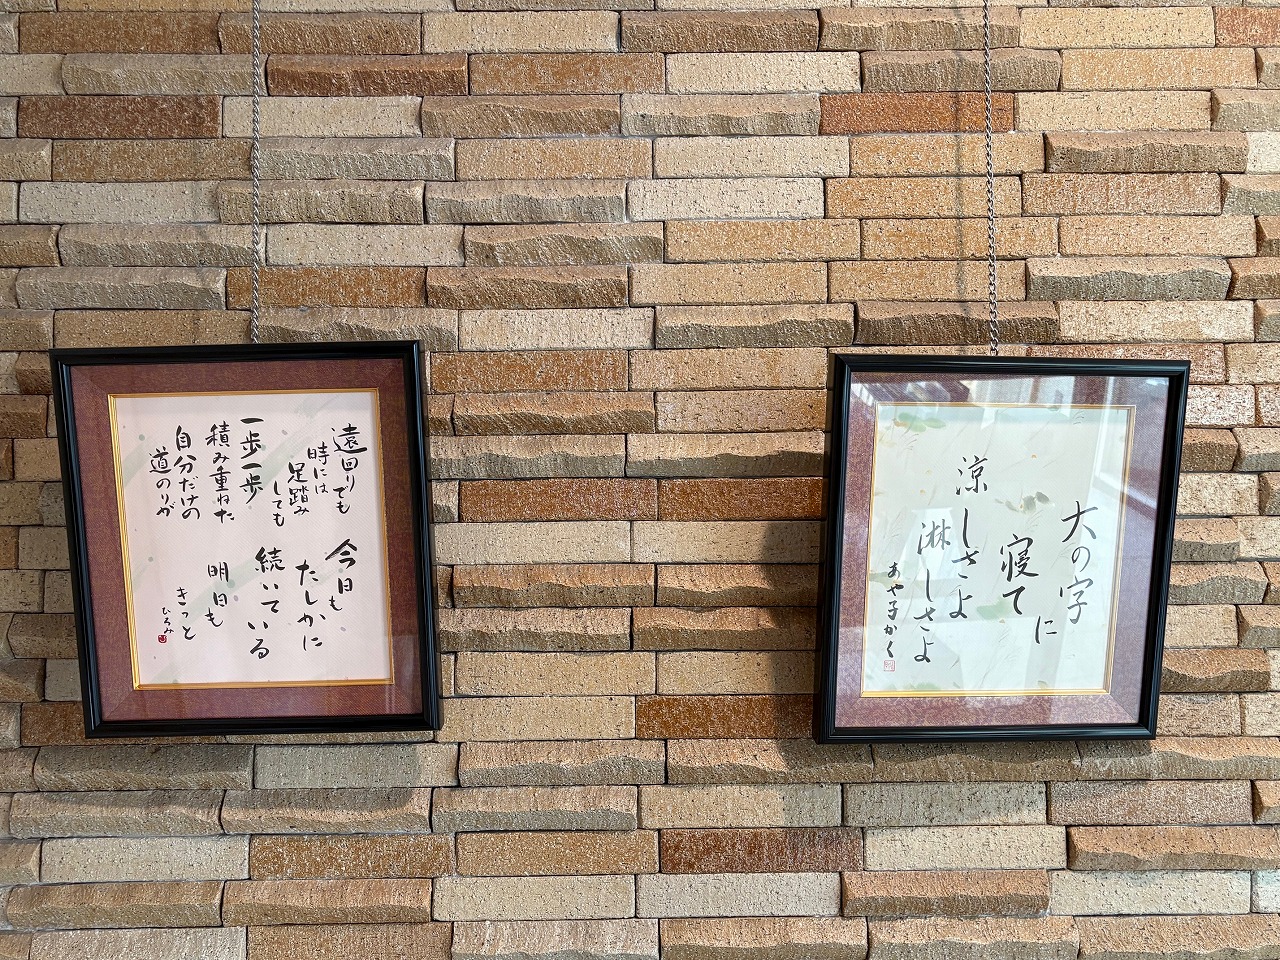 遠回りでも
時には
足踏み
しても
一歩一歩
積み重ねた
自分だけの
道のりが
今日も
たしかに
続いている
明日も
きっと
ひろみ
大の字に
寝て
涼しさよ
淋しさよ
あや子かく